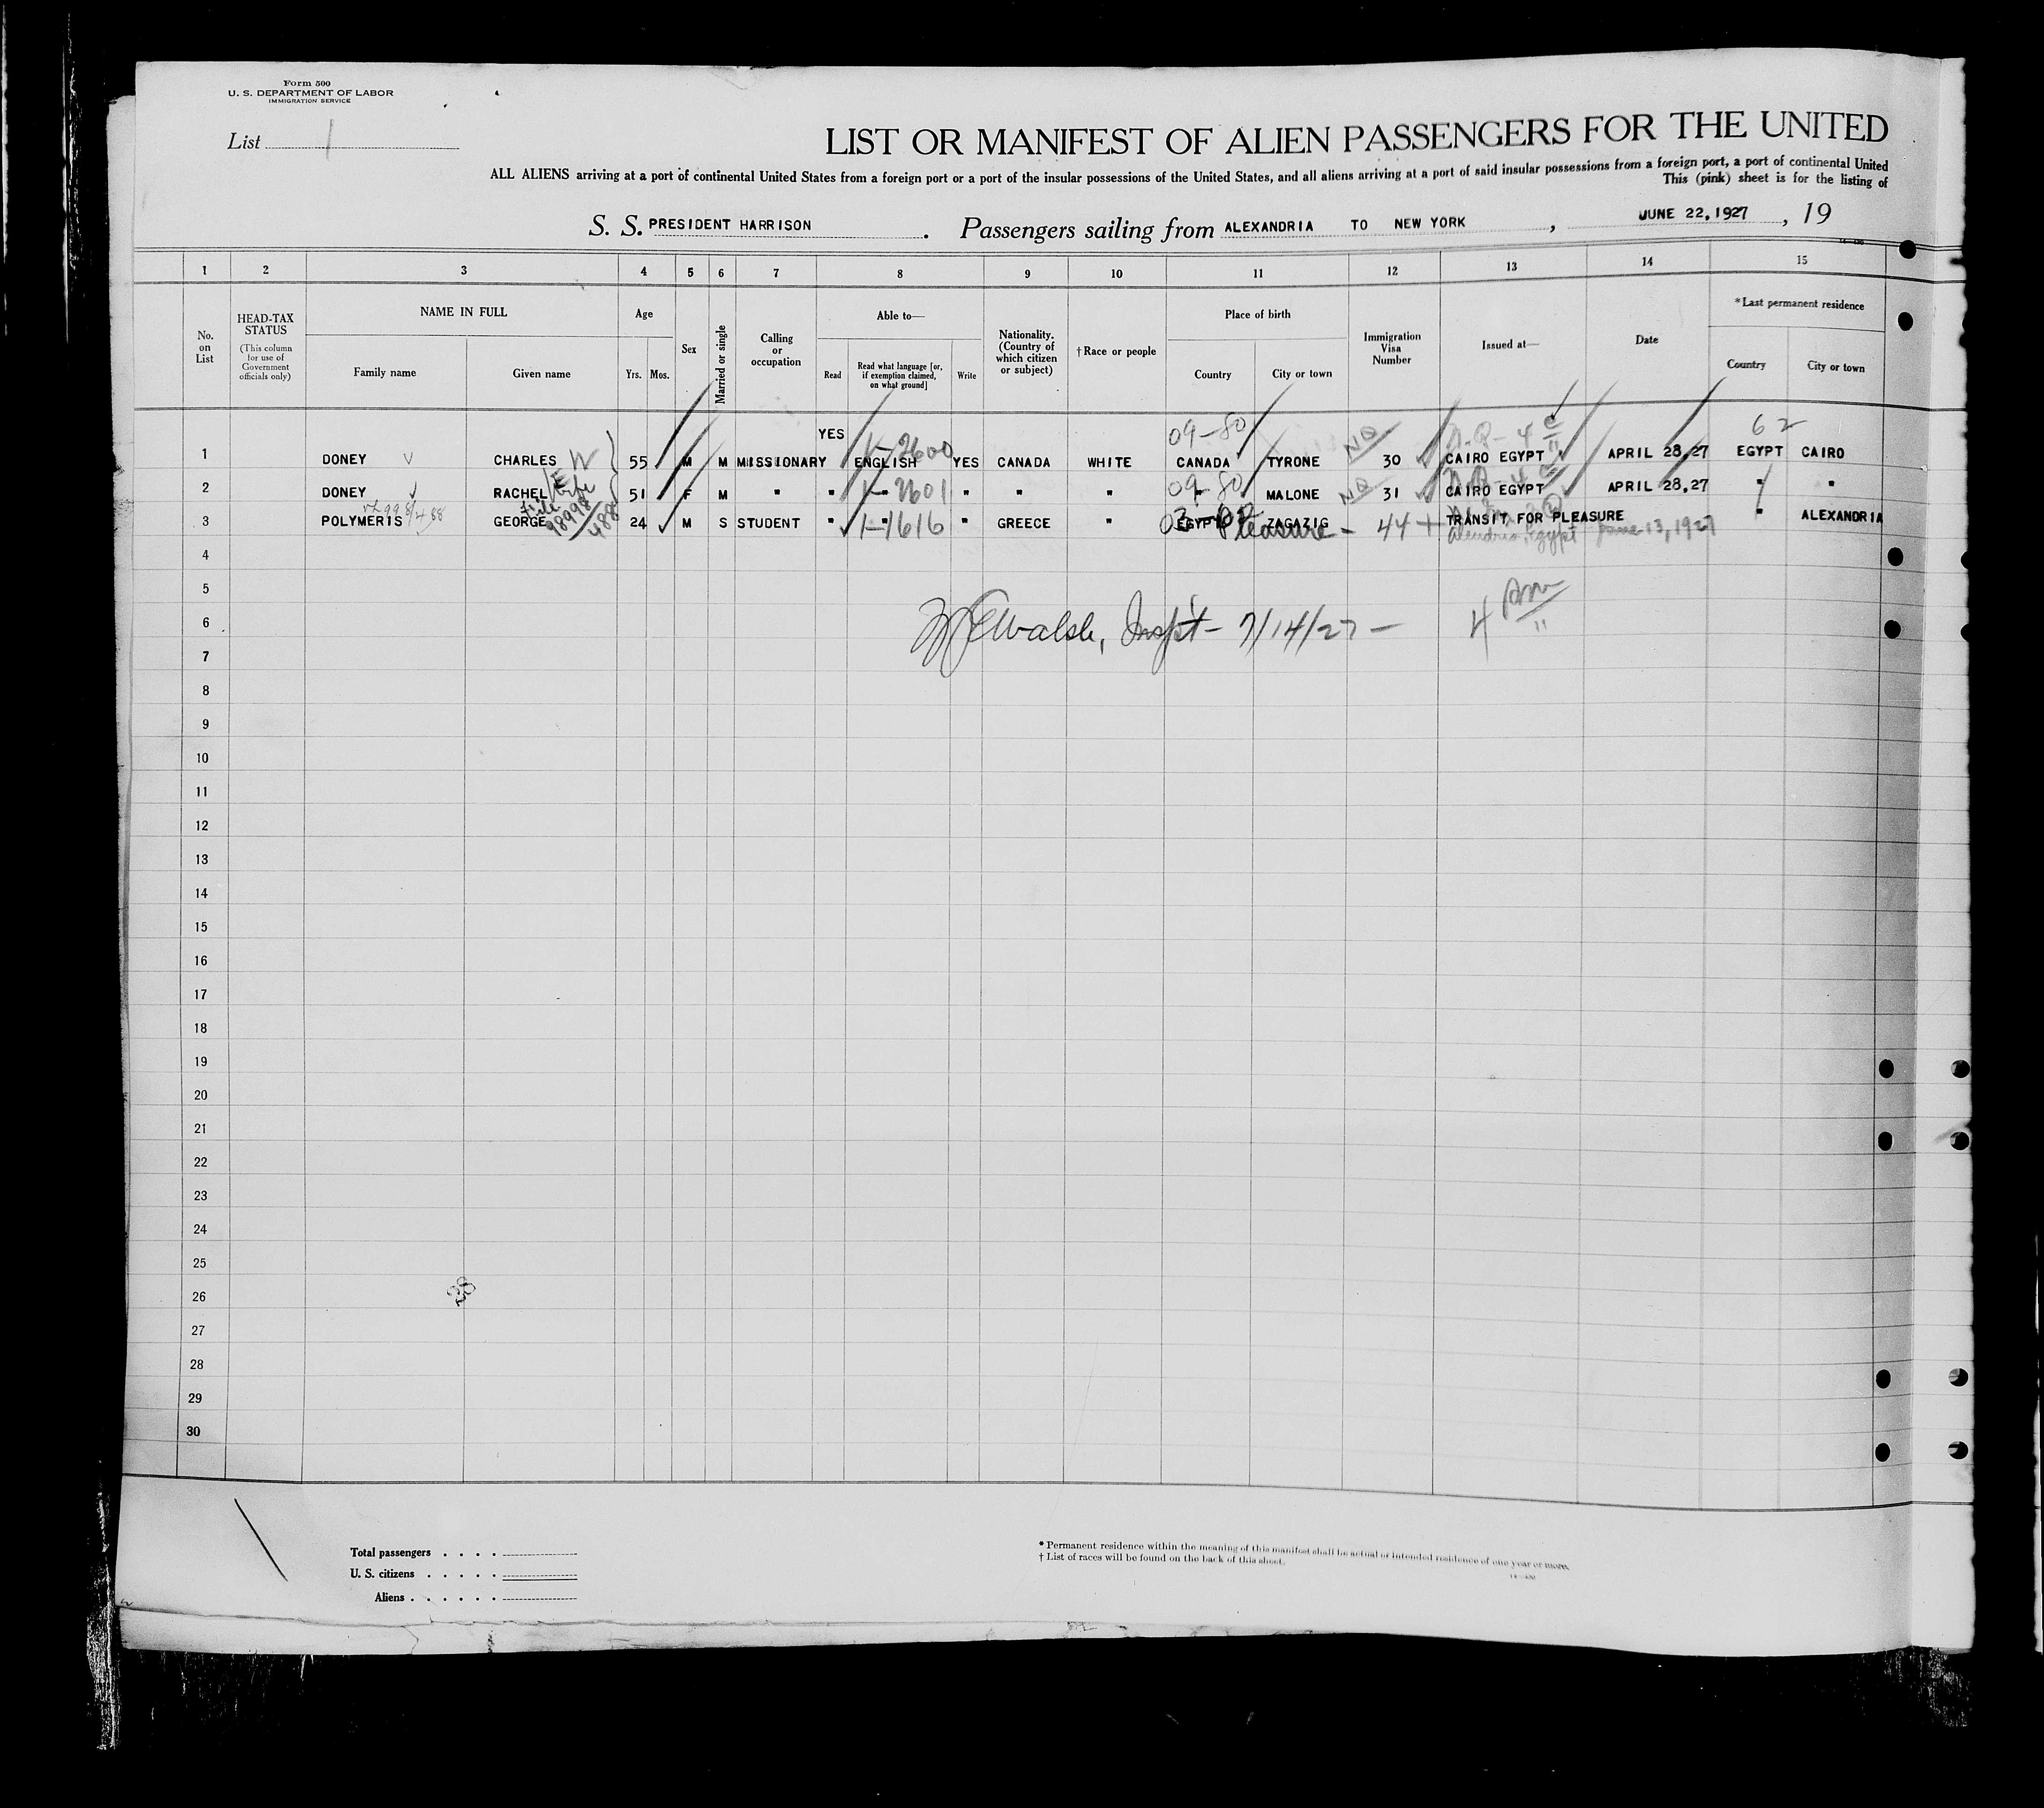 Form 500
U. S. DEPARTMENT OF LABOR
IMMIGRATION SERVICE
List 1
LIST OR MANIFEST OF ALIEN PASSENGERS FOR THE UNITED
ALL ALIENS arriving at a port of continental United States from a foreign port or a port of the insular possessions of the United States, and all aliens arriving at a port of said insular possessions from a foreign port, a port of continental United
This (pink) sheet is for the listing of
S. S. PRESIDENT HARRISON . Passengers sailing from ALEXANDRIA TO NEW YORK , JUNE 22, 1927 , 19
1 2 3 4 5 6 7 8 9 10 11 12 13 14 15
No. on List
HEAD-TAX STATUS (This column for use of Government officials only)
NAME IN FULL
Family name Given name
Age
Yrs. Mos.
Sex
Married or single
Calling or occupation
Able to—
Read Read what language [or, if exemption claimed, on what ground] Write
Nationality. (Country of which citizen or subject)
† Race or people
Place of birth
Country City or town
Immigration Visa Number
Issued at—
Date
* Last permanent residence
Country City or town
09-80 62
1 DONEY CHARLES 55 M M MISSIONARY YES ENGLISH 1-2600 YES CANADA WHITE CANADA TYRONE NQ 30 CAIRO EGYPT APRIL 28,27 EGYPT CAIRO
2 DONEY RACHEL wife 51 F M " " " 1-2601 " " " 09-80 " MALONE NQ 31 CAIRO EGYPT APRIL 28,27 " "
3 POLYMERIS GEORGE 24 M S STUDENT " " 1-1616 " GREECE " EGYPT ZAGAZIG Pleasure - 44 TRANSIT FOR PLEASURE " ALEXANDRIA
File 98998/488
Egypt June 13, 1927
4
5
6
Walsh, Inspt - 7/14/27 -
4
7
8
9
10
11
12
13
14
15
16
17
18
19
20
21
22
23
24
25
26
27
28
29
30
Total passengers . . . .
U. S. citizens . . . . .
Aliens . . . . . .
* Permanent residence within the meaning of this manifest shall be actual or intended residence of one year or more.
† List of races will be found on the back of this sheet.